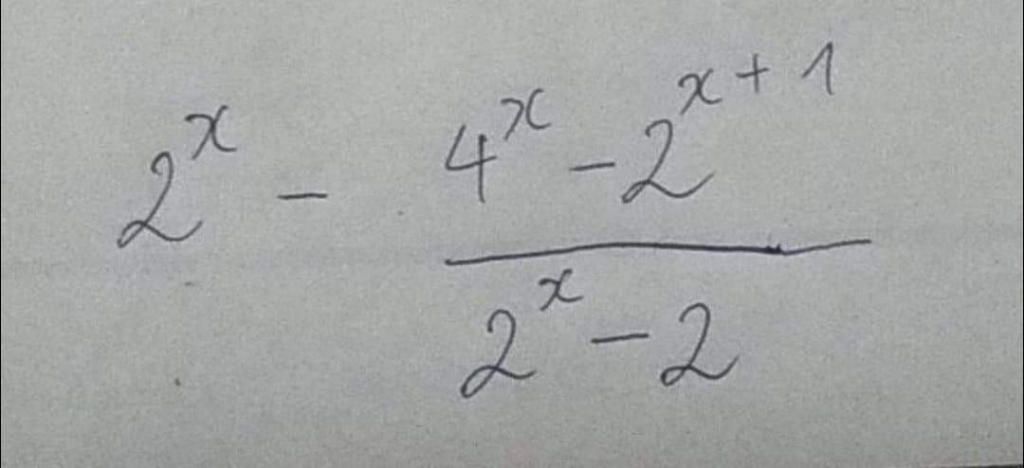 2^x - \frac{4^x - 2^{x+1}}{2^x - 2}